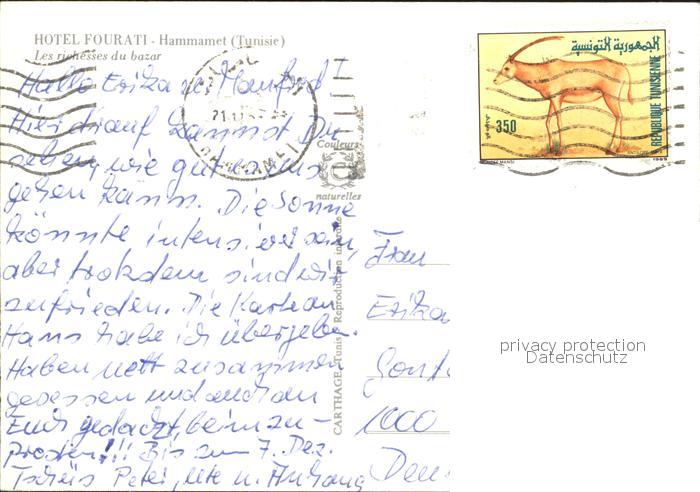 HOTEL FOURATI - Hammamet (Tunisie)
Les richesses du bazar
Hallo Erika u. Manfred
Hier drauf kannst Du
sehen, wie gut es uns
gehen kann. Die Sonne
könnte intensiver sein,
aber trotzdem sind wir
zufrieden. Die Karte an
Hans habe ich übergeben.
Haben nett zusammen
gesessen und auch an
Euch gedacht, beim zu-
prosten!!! Bis zum 7. Dez.
Tschüs Peter, Ute u. Anhang
Couleurs
naturelles
CARTHAGE - Tunis - Reproduction interdite
الجمهورية التونسية
REPUBLIQUE TUNISIENNE
350
Frau
Erika
1000
privacy protection
Datenschutz